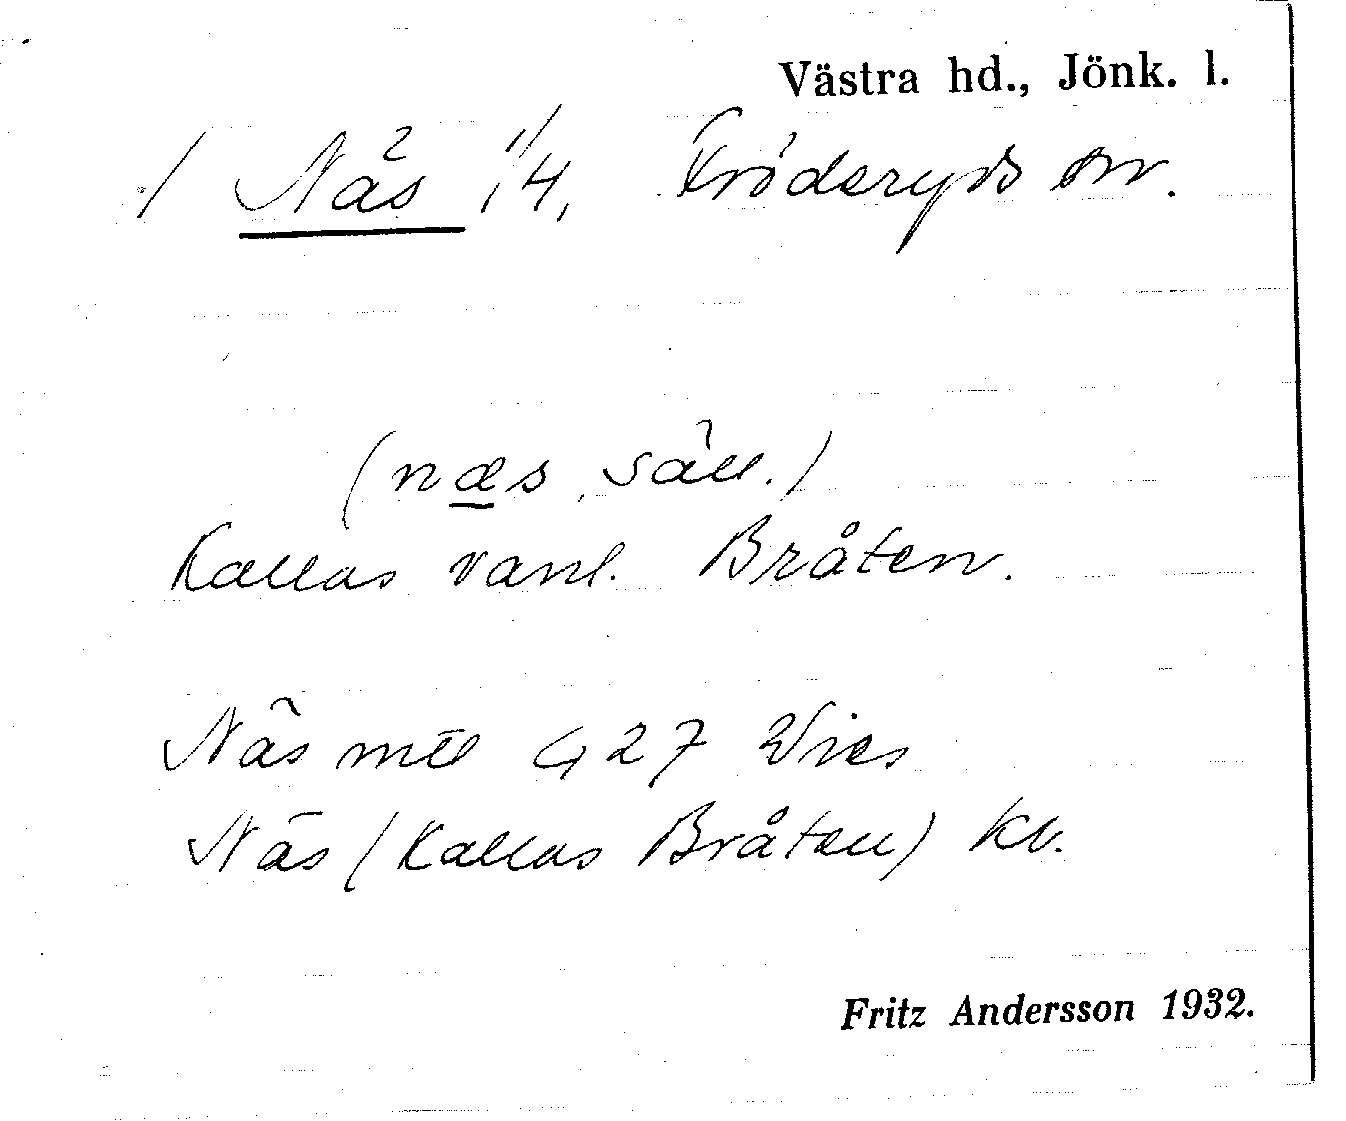 Västra hd., Jönk. l.
/ Näs 1/4, Fröderyds sn.
(næs, säll.)
Kallas vanl. Bråten.
Näs mtl G 27 Wies
Näs (Kallas Bråten) kb.
Fritz Andersson 1932.